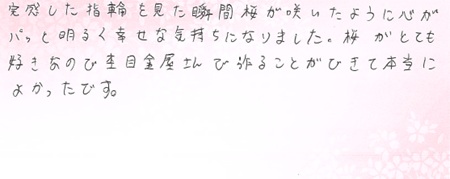 完成した指輪を見た瞬間桜が咲いたように心が
パッと明るく幸せな気持ちになりました。桜がとても
好きなので杢目金屋さんで作ることができて本当に
よかったです。